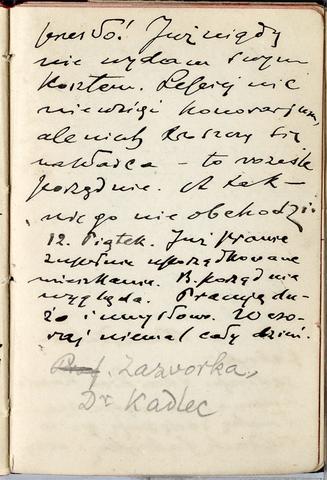 przesło! Już nigdy
nie wydam swym
kosztem. Lepiej nic
nie wziąć honorarjum,
ale niech troszczy się
nakładca – to rozeszle
porządnie. A tak –
nikogo nie obchodzi.
12. Piątek. Już prawie
zupełnie uporządkowane
mieszkanie. B. porządnie
wygląda. Pracuję du-
żo i umysłowo. Wczo-
raj niemal cały dzień.
Prof. Zazvorka,
Dr Kadlec